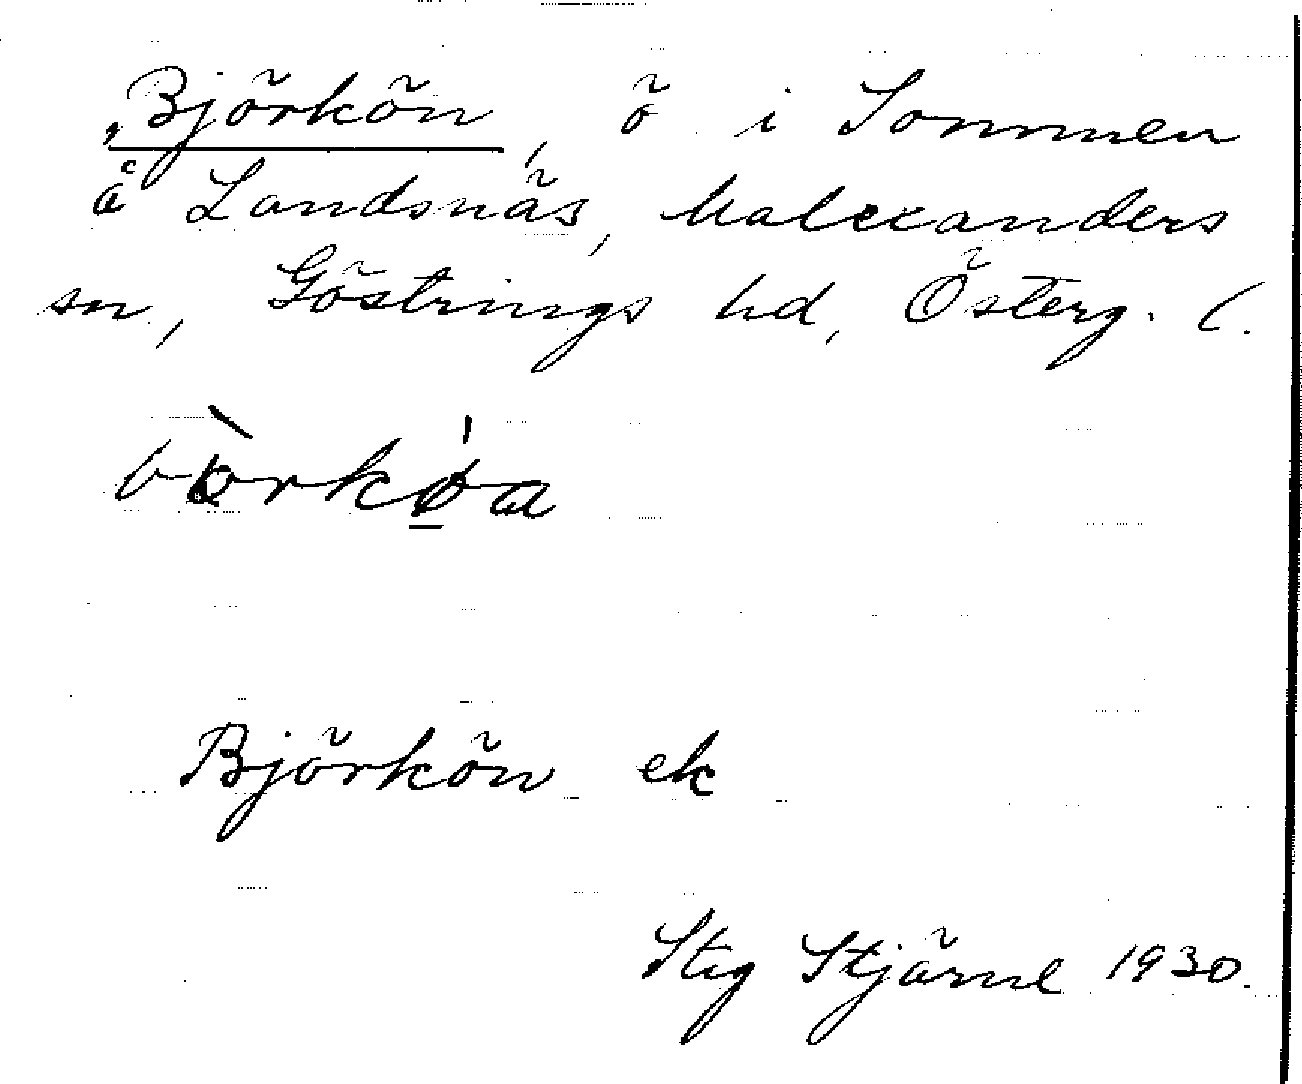 Björkön, ö i Sommen
å Landsnäs, Malexanders
sn, Göstrings hd, Österg. l.
bòrkǿ̱a
Björkön ek
Stig Stjärne 1930.